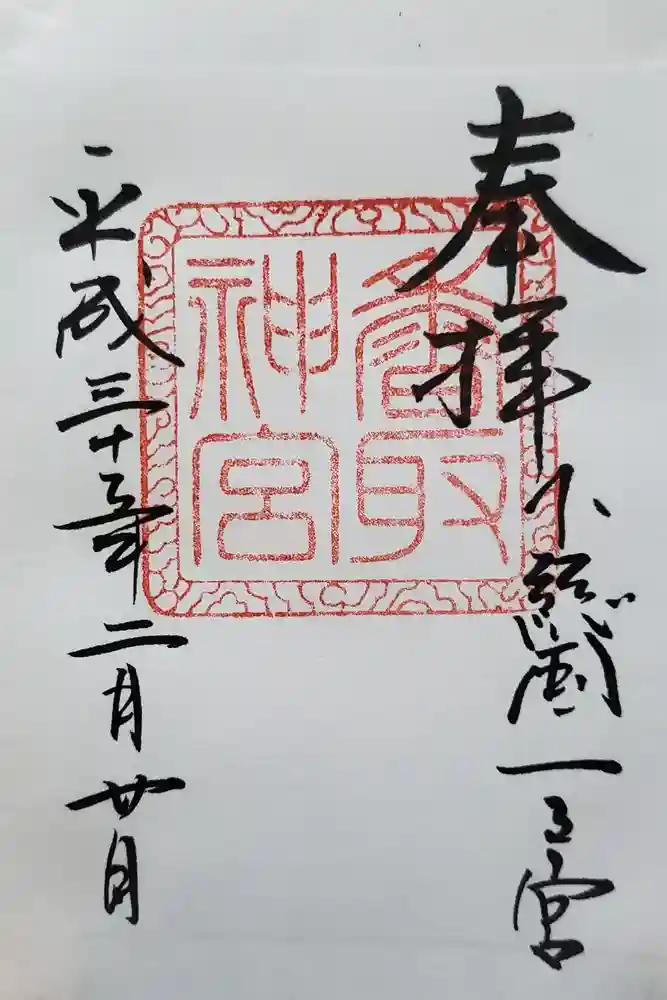 奉拝
下総國一之宮
香取
神宮
平成三十年二月廿日